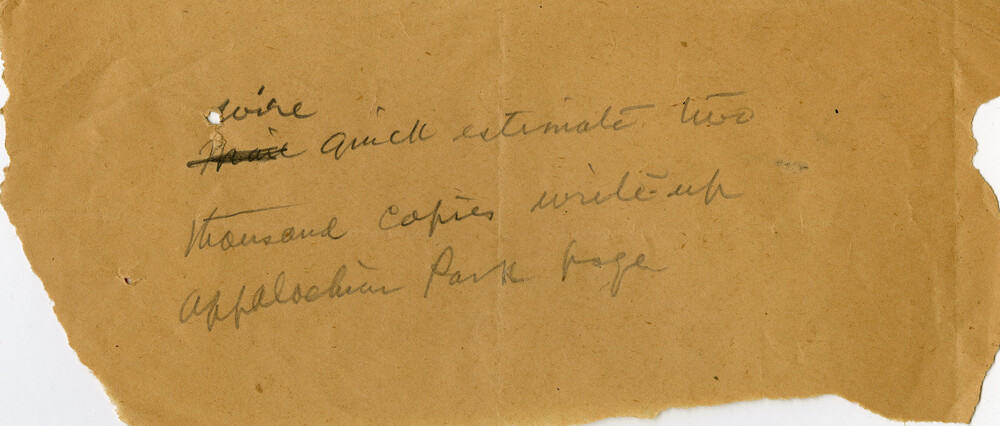 wire
Mail quick estimate two
thousand copies write-up
Appalachian Park page